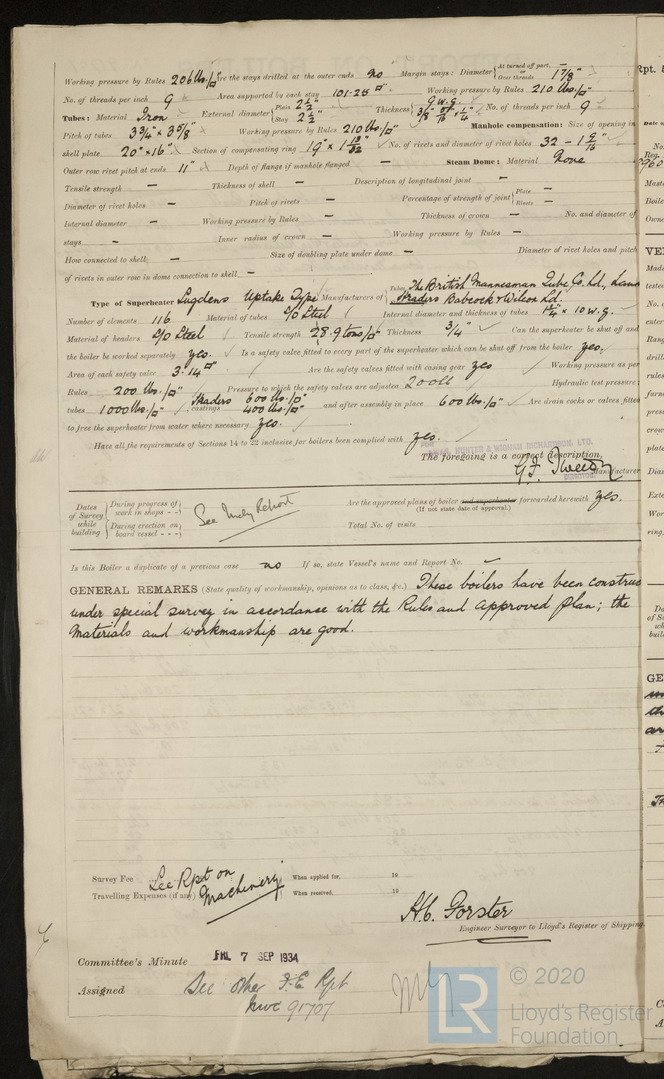 Working pressure by Rules 206 lbs./□" Are the stays drilled at the outer ends no Margin stays: Diameter { At turned off part, — or Over threads 1 7/8"
No. of threads per inch 9 Area supported by each stay 101.25 □" Working pressure by Rules 210 lbs./□"
Tubes: Material Iron External diameter { Plain 2 1/2" Stay 2 1/2" Thickness { 9 w.g. 3/8" 5/16" & 1/4" No. of threads per inch 9
Pitch of tubes 3 3/4" x 3 5/8" Working pressure by Rules 210 lbs./□" Manhole compensation: Size of opening in
shell plate 20" x 16" Section of compensating ring 19" x 1 13/32" No. of rivets and diameter of rivet holes 32 - 1 9/16"
Outer row rivet pitch at ends 11" Depth of flange if manhole flanged — Steam Dome: Material None
Tensile strength — Thickness of shell — Description of longitudinal joint —
Diameter of rivet holes — Pitch of rivets — Percentage of strength of joint { Plate — Rivets —
Internal diameter — Working pressure by Rules — Thickness of crown — No. and diameter of
stays — Inner radius of crown — Working pressure by Rules —
How connected to shell — Size of doubling plate under dome — Diameter of rivet holes and pitch
of rivets in outer row in dome connection to shell —
Type of Superheater Sugdens Uptake Type Manufacturers of { Tubes The British Mannesman Tube Co. Ld,
Headers Babcock & Wilcox Ld.
Number of elements 116 Material of tubes S/D Steel Internal diameter and thickness of tubes x 10 w.g.
Material of headers S/D Steel Tensile strength 28.9 tons/□" Thickness 3/4" Can the superheater be shut off and
the boiler be worked separately yes. Is a safety valve fitted to every part of the superheater which can be shut off from the boiler yes.
Area of each safety valve 3.14 □" Are the safety valves fitted with easing gear yes Working pressure as per
Rules 200 lbs./□" Pressure to which the safety valves are adjusted 200 lb Hydraulic test pressure:
tubes 1000 lbs./□" Headers castings 600 lbs./□" 400 lbs./□" and after assembly in place 600 lbs./□" Are drain cocks or valves fitted
to free the superheater from water where necessary yes.
Have all the requirements of Sections 14 to 22 inclusive for boilers been complied with yes.
HUNTER & WIGHAM RICHARDSON, LTD.
The foregoing is a correct description,
Manufacturer
DIRECTOR.
Dates of Survey while building { During progress of work in shops - - During erection on board vessel - - - } See Mchy Report
Are the approved plans of boiler and superheater forwarded herewith yes.
(If not state date of approval.)
Total No. of visits
Is this Boiler a duplicate of a previous case no If so, state Vessel's name and Report No. —
GENERAL REMARKS (State quality of workmanship, opinions as to class, &c.) These boilers have been construc
under special survey in accordance with the Rules and approved plan; the
materials and workmanship are good.
Survey Fee ... See Rpt on When applied for, 19
Travelling Expenses (if any) Machinery When received, 19
H.C. Forster
Engineer Surveyor to Lloyd's Register of Shipping
Committee's Minute FRI. 7 SEP 1934
Assigned See other F.E. Rpt
Nwc 91707
LR © 2020
Lloyd's Register
Foundation